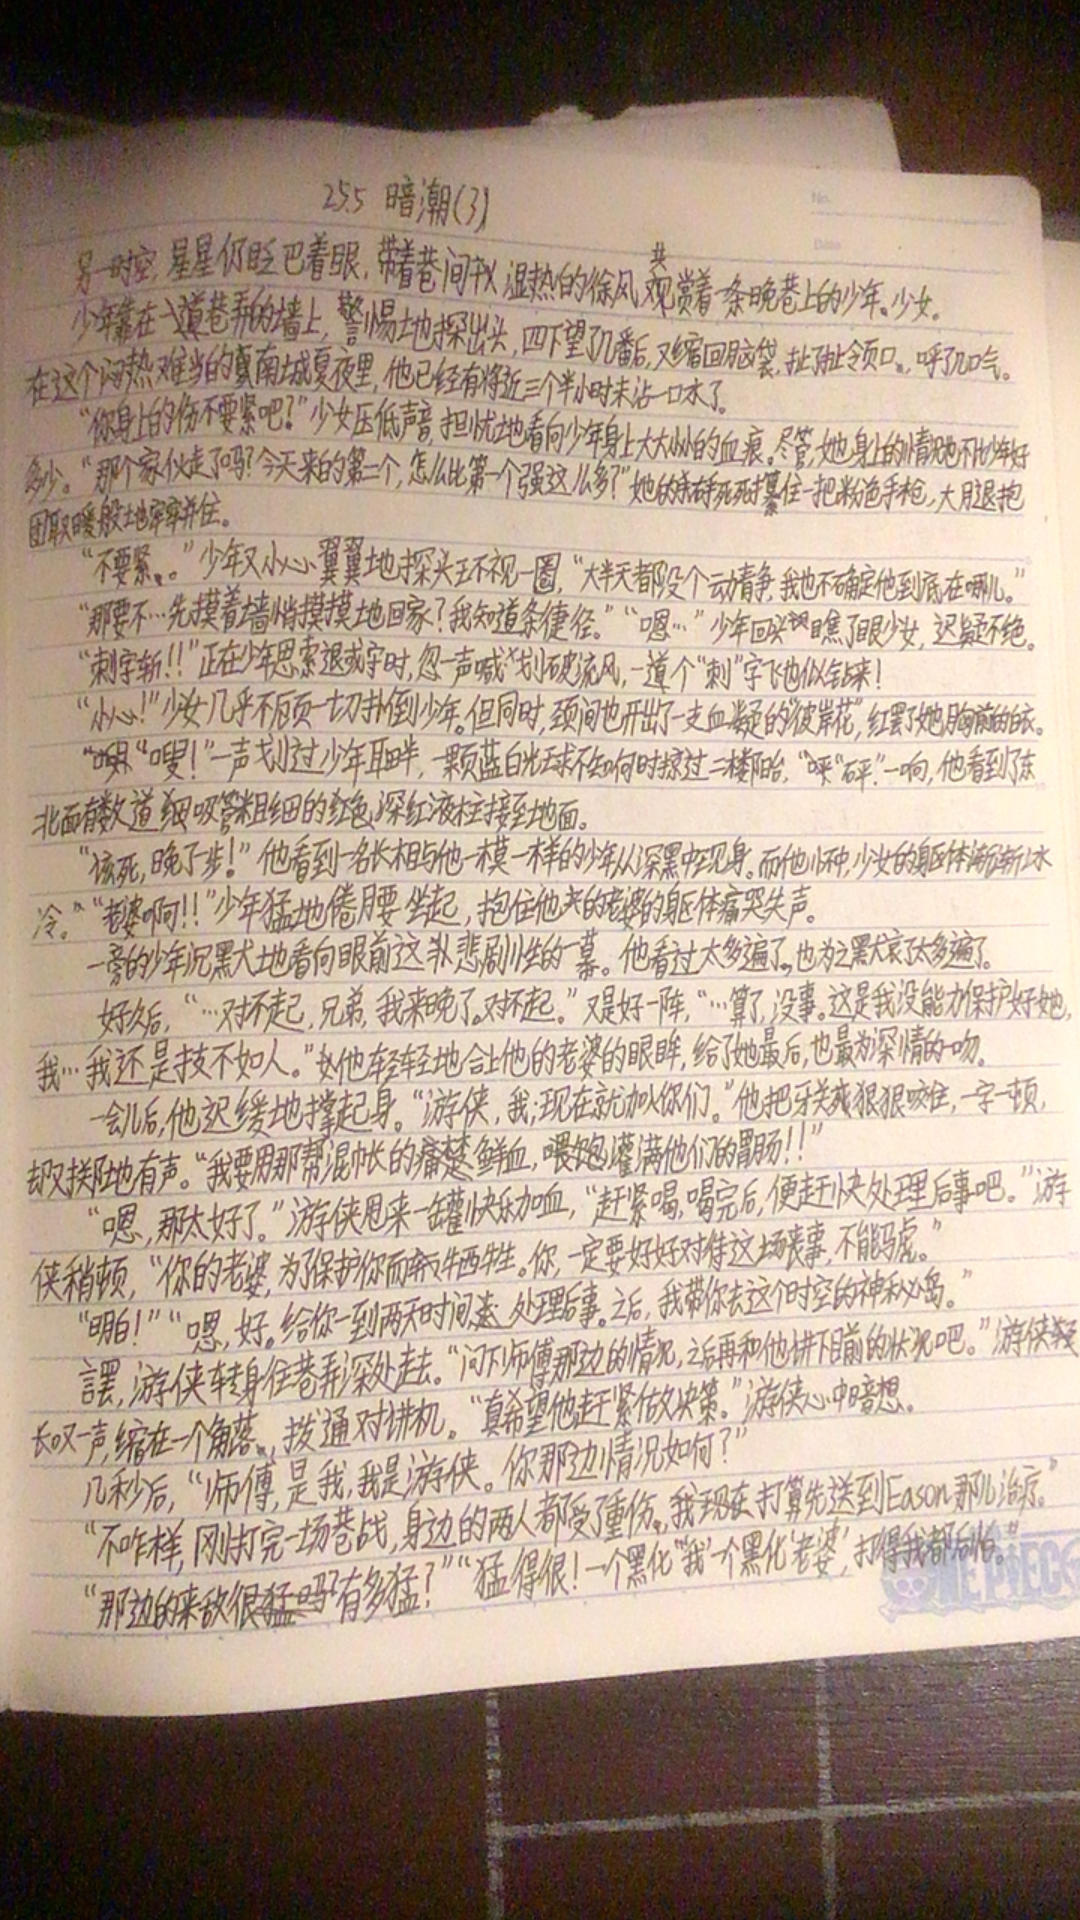 25.5 暗潮(3)
另一时空,星星仍眨巴着眼,带着巷间 温热的徐风共观赏着一条晚巷上的少年。少女。
少年靠在一道巷弄的墙上,警惕地探出头,四下望了几番后,又缩回脑袋,扯扯领口,呼了口气。
在这个闷热难当的真南城夏夜里,他已经有将近三个半小时未沾一口水了。
“你身上的伤不要紧吧?”少女压低声音,担忧地看向少年身上大大小小的血痕。尽管,她身上的情况也不比少年好
多少。“那个家伙走了吗?今天来的第二个,怎么比第一个强这么多?”她的右手死死攥住一把粉色手枪,大腿抱
团取暖般地牢牢并住。
“不要紧。”少年又小心翼翼地探头环视一圈,“大半天都没个动静,我也不确定他到底在哪儿。”
“那要不…先摸着墙悄摸摸地回家?我知道条捷径。”“嗯…”少年回头瞧了眼少女,迟疑不绝。
“刺字斩!!”正在少年思索退或守时,忽一声喊划破流风,一道个“刺”字飞也似钻来!
“小心!”少女几乎不顾一切扑倒少年。但同时,颈间也开出了一支血凝的“彼岸花”,红罢了她胸前的白衣。
“嗖!”一声划过少年耳畔,一颗蓝白光球不知何时掠过二楼阳台,“呯”“砰”一响,他看到了东
北面有数道细吸管粗细的红色,深红液柱接至地面。
“该死,晚了步!”他看到一名长相与他一模一样的少年从深黑中现身。而他怀中,少女的身躯体渐渐冰
冷。“老婆啊!!”少年猛地倦腰坐起,抱住他的老婆的身躯体痛哭失声。
一旁的少年沉默地看向眼前这悲剧性的一幕。他看过太多遍了,也为之默哀了太多遍了。
好久后,“…对不起,兄弟,我来晚了。对不起。”又是好一阵,“…算了,没事。这是我没能力保护好她,
我…我还是技不如人。”他轻轻地合上他的老婆的眼眸,给了她最后,也最为深情的一吻。
一会儿后,他迟缓地撑起身。“游侠,我,现在就加入你们。”他把牙关狠狠咬住,一字一顿,
却又掷地有声。“我要用那帮混帐的痛楚鲜血,喂饱灌满他们的胃肠!!”
“嗯,那太好了。”游侠甩来一罐快乐加血,“赶紧喝,喝完后,便赶快处理后事吧。”游
侠稍顿,“你的老婆,为了保护你而牺牲。你,一定要好好对待这场丧事,不能马虎。”
“明白!”“嗯,好。给你一到两天时间 处理后事。之后,我带你去这个时空的神秘岛。”
言罢,游侠转身往巷弄深处走去。“问下师傅那边的情况,之后再和他讲下目前的状况吧。”游侠轻
长叹一声,缩在一个角落,拨通对讲机。“真希望他赶紧做决策。”游侠心中暗想。
几秒后,“师傅,是我,我是游侠。你那边情况如何?”
“不咋样,刚打完一场巷战,身边的两人都受了重伤。我现在打算先送到Eason那儿治疗。”
“那边的来敌很猛吗?有多猛?”“猛得很!一个黑化‘我’一个黑化‘老婆’,打得我都后怕。”
ONE PIECE
No.
Date